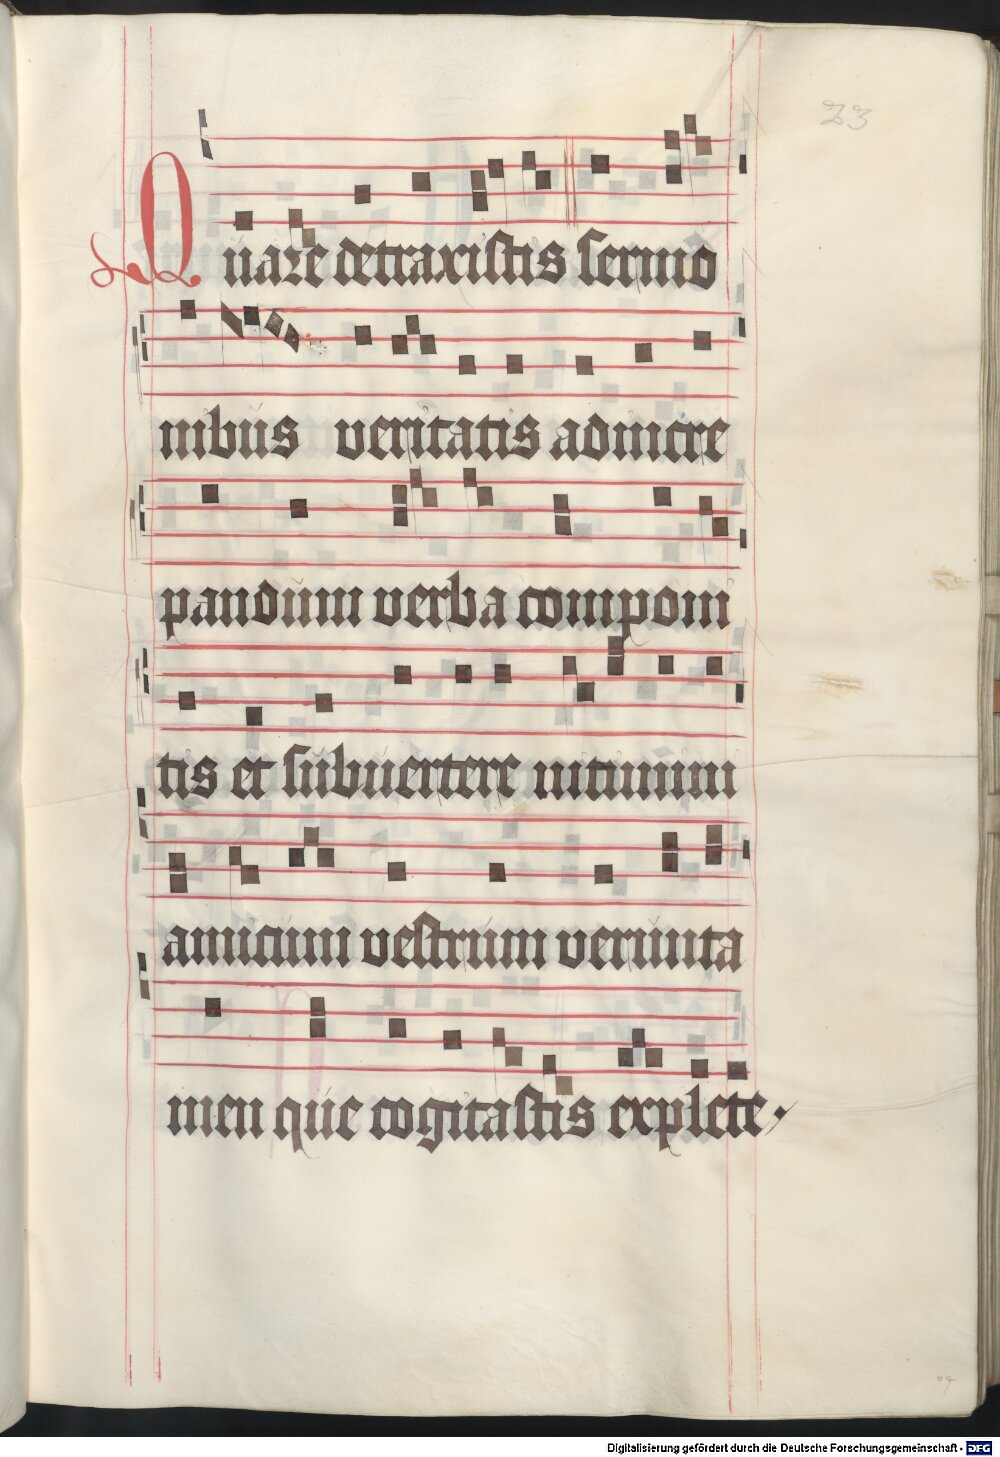 23
Quare detraxistis sermo
nibus veritatis ad incre
pandum verba componi
tis et subvertere nitimini
amicum vestrum verunta
men que cogitastis explete.
Digitalisierung gefördert durch die Deutsche Forschungsgemeinschaft - DFG